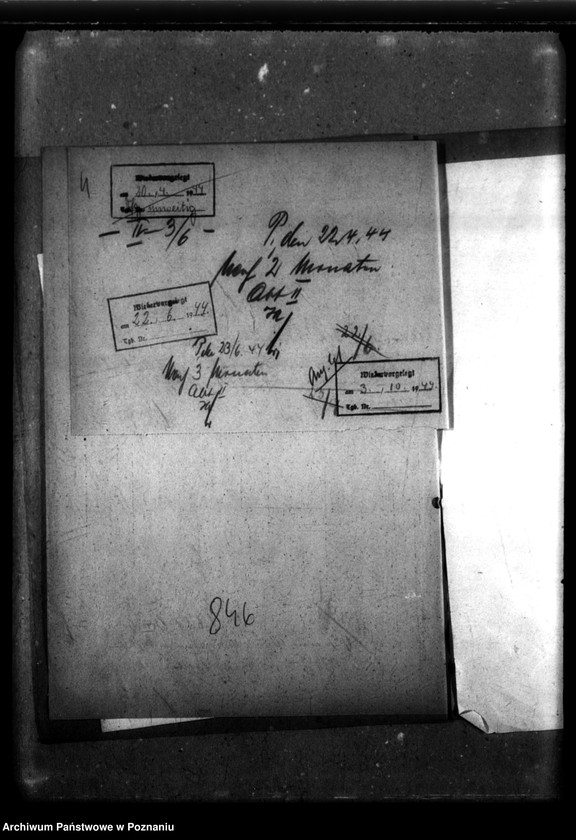 Wiedervorgelegt
am 20. 4. 1944
Tgb. Nr.
IV 3/6
P, den 22.4.44
Nach 2 Monaten
Abt II
Wiedervorgelegt
am 22. 6. 1944.
Tgb. Nr.
P. den 23/6. 44
Nach 3 Monaten
Abt I
22/6
Wiedervorgelegt
am 3. 10. 1944.
Tgb. Nr.
846
Archiwum Państwowe w Poznaniu